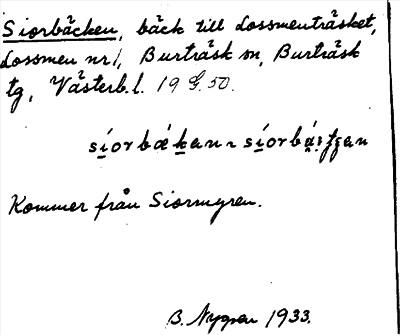 Siorbäcken, bäck till Lossmenträsket,
Lossmen nr 1, Burträsk sn, Burträsk
tg, Västerb. l. 19 G. 50.
Kommer från Siormyren.
B. Nygren 1933.